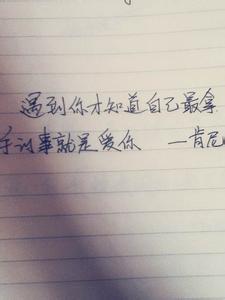 遇到你才知道自己最拿
手的事就是爱你 —肯尼